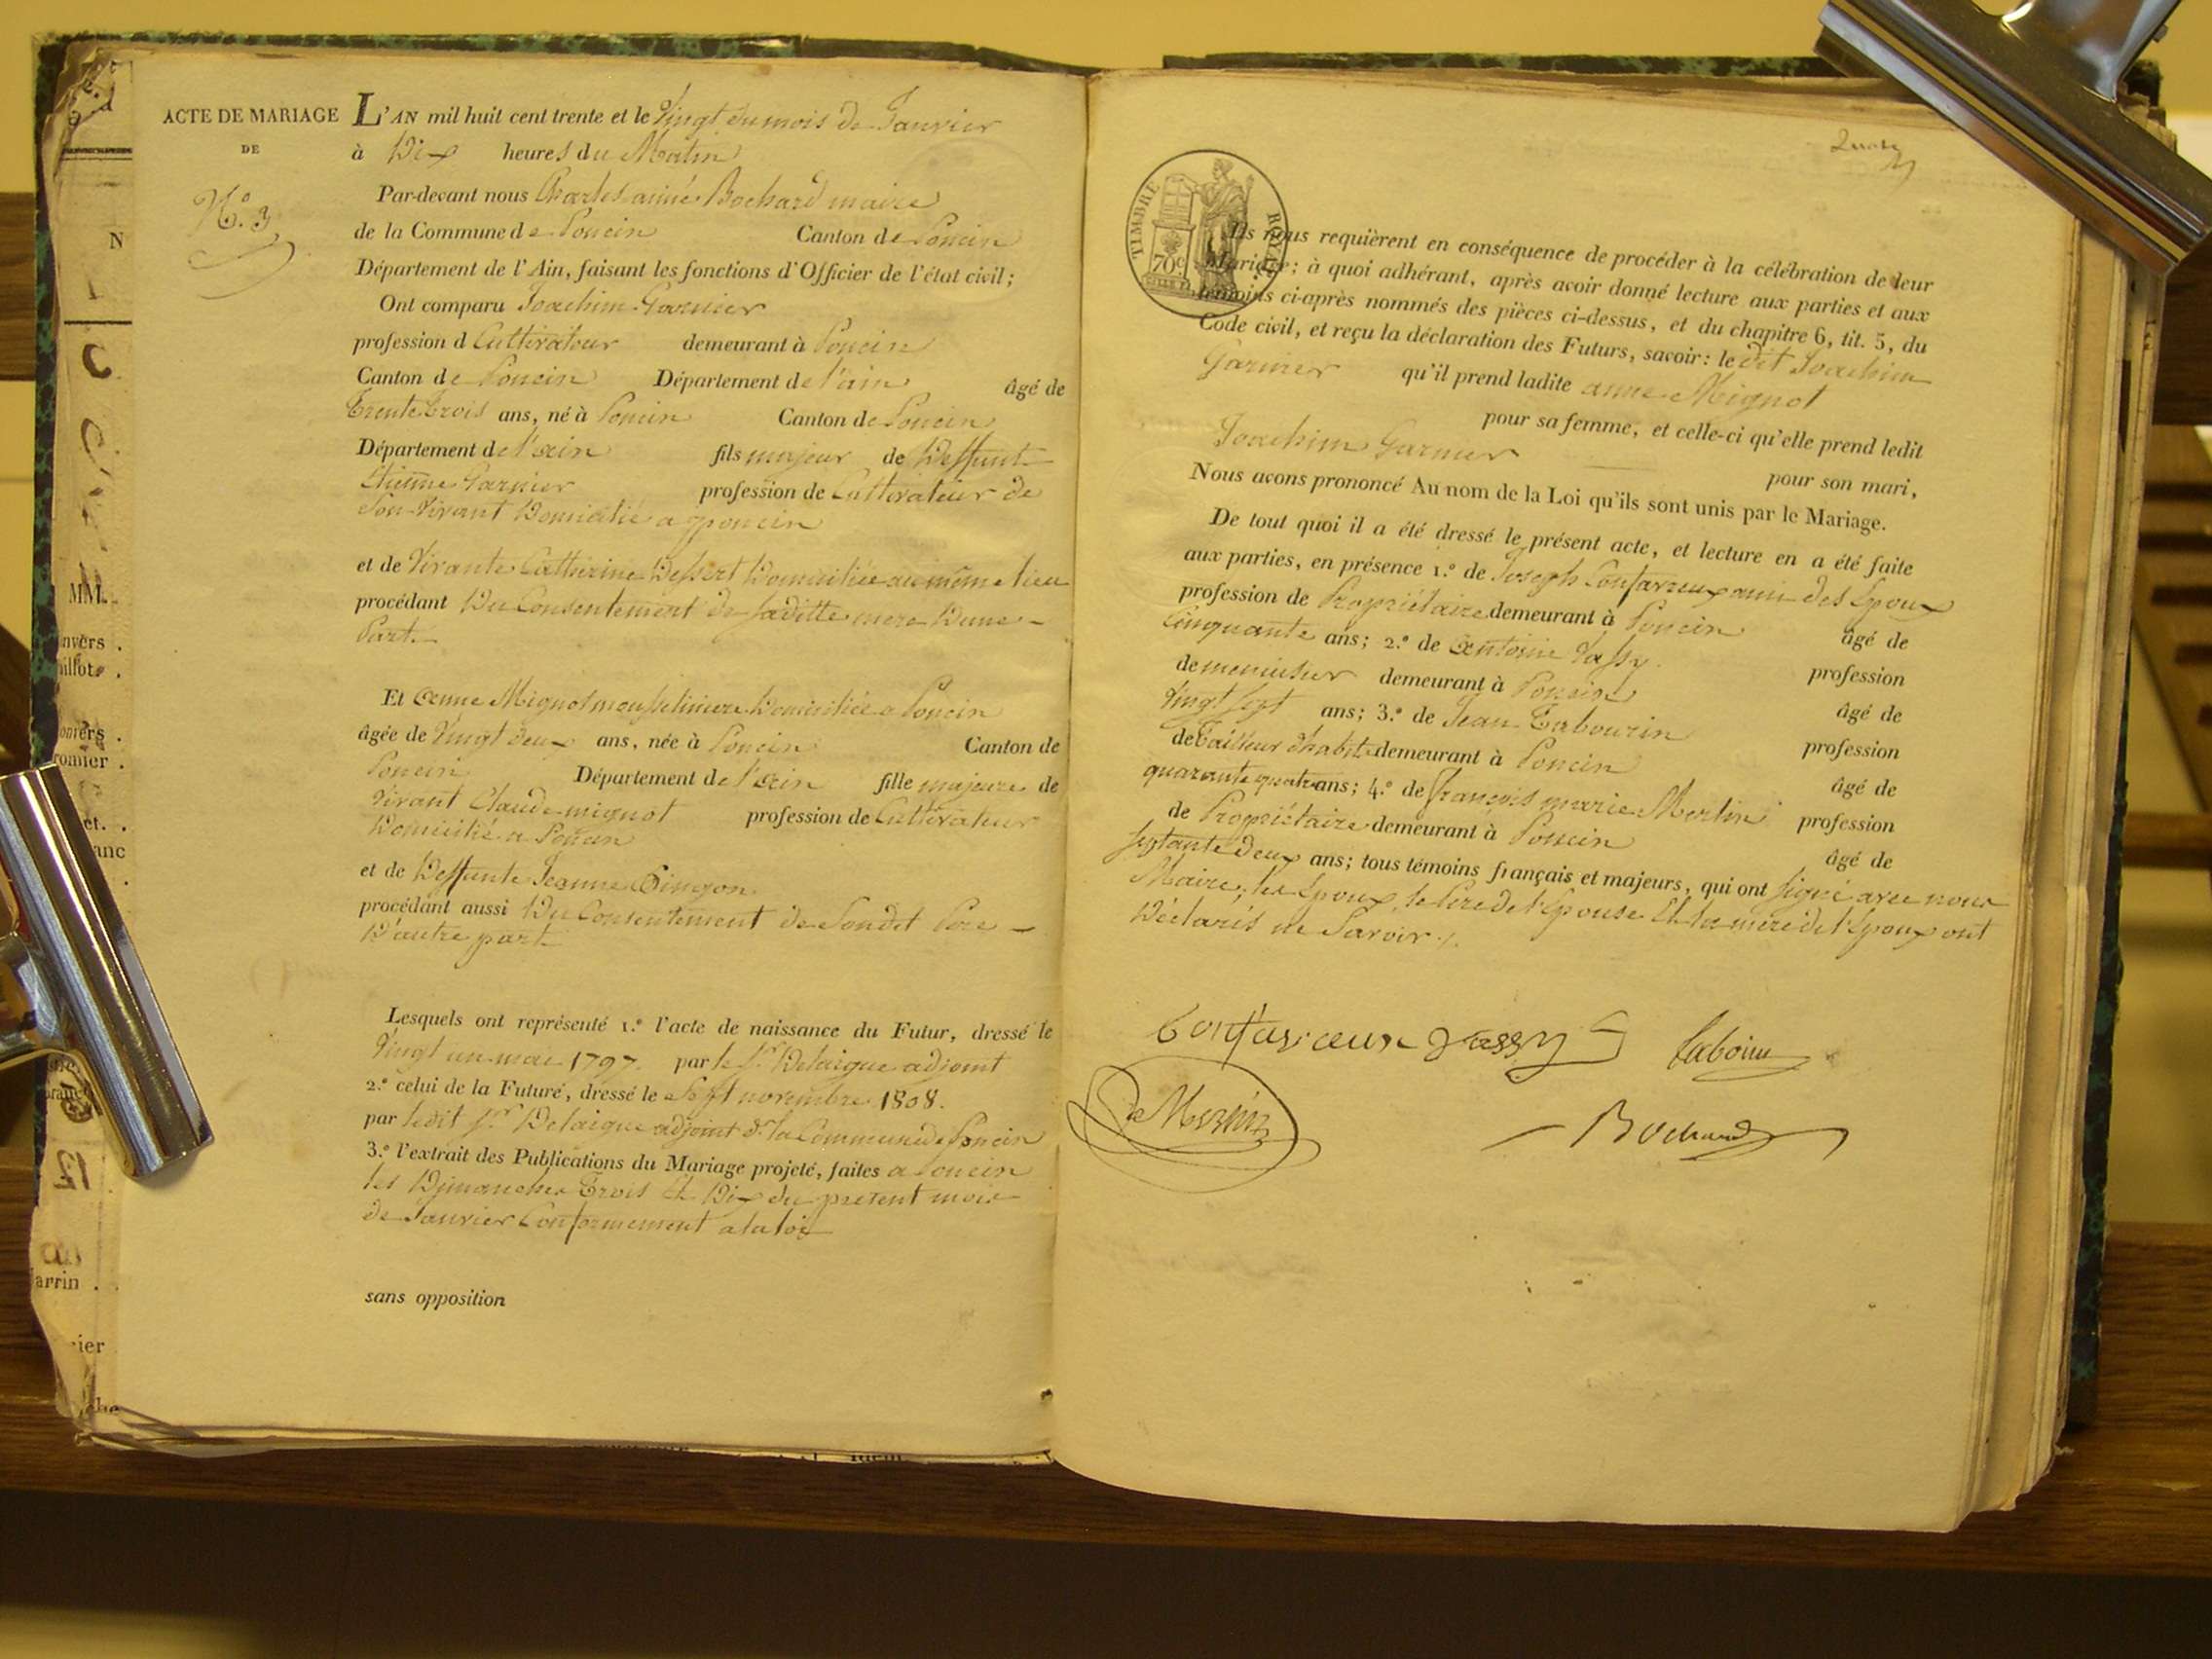 ACTE DE MARIAGE
DE
N.o 3
L'AN mil huit cent trente et le Vingt du mois de Janvier
à Dix heures du Matin
Par-devant nous Charles aimé Bochard maire
de la Commune de Poncin Canton de Poncin
Département de l'Ain, faisant les fonctions d'Officier de l'état civil;
Ont comparu Joachim Garnier
profession d Cultivateur demeurant à Poncin
Canton de Poncin Département de l'ain âgé de
trente trois ans, né à Poncin Canton de Poncin
Département de l'ain fils majeur de Deffunt
Etienne Garnier profession de Cultivateur de
Son Vivant Domicilié a poncin
et de Vivante Catherine Dessert Domiciliée au même lieu
procédant Du Consentement de saditte mere D'une
Part.
Et Anne Mignot mousseliniere Domiciliée a Poncin
âgée de Vingt deux ans, née à Poncin Canton de
Poncin Département de l'ain fille majeure de
Vivant Claude mignot profession de Cultivateur
Domicilié a Poncin
et de Deffunte Jeanne
procédant aussi Du Consentement de Sondit Pere
D'autre part
Lesquels ont représenté 1.º l'acte de naissance du Futur, dressé le
Vingt un mai 1797. par le Sr. Delaigue adjoint
2.º celui de la Future, dressé le Sept novembre 1808.
par ledit Sr. Delaigue adjoint de la Commune de Poncin
3.º l'extrait des Publications du Mariage projeté, faites a Poncin
les Dimanches Trois Et Dix du present mois
de Janvier Conformement a la loi
sans opposition
TIMBRE ROYAL
70c
Ils nous requièrent en conséquence de procéder à la célébration de leur
Mariage; à quoi adhérant, après avoir donné lecture aux parties et aux
témoins ci-après nommés des pièces ci-dessus, et du chapitre 6, tit. 5, du
Code civil, et reçu la déclaration des Futurs, savoir: le dit Joachim
Garnier qu'il prend ladite anne Mignot
pour sa femme, et celle-ci qu'elle prend ledit
Joachim Garnier pour son mari,
Nous avons prononcé Au nom de la Loi qu'ils sont unis par le Mariage.
De tout quoi il a été dressé le présent acte, et lecture en a été faite
aux parties, en présence 1.º de Joseph Confavreux ami des Epoux
profession de Propriétaire demeurant à Poncin âgé de
Cinquante ans; 2.º de Antoine Vassy profession
de menuisier demeurant à Poncin âgé de
Vingt Sept ans; 3.º de Jean Tabourin profession
de tailleur d'habits demeurant à Poncin âgé de
quarante quatre ans; 4.º de françois marie Merlin profession
de Propriétaire demeurant à Poncin âgé de
Septante Deux ans; tous témoins français et majeurs, qui ont signé avec nous
Maire, les Epoux, le Pere de l'Epouse Et la mere de l'Epoux ont
Déclarés ne Savoir
Vassy
Bochard